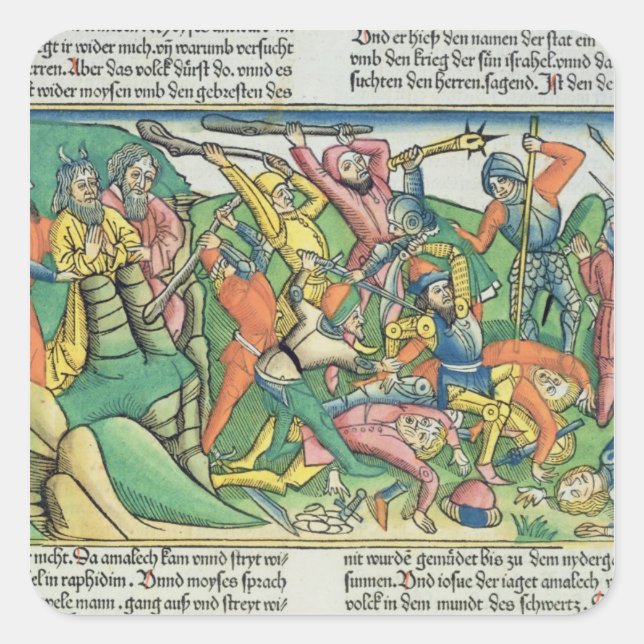 egt ir wider mich. vñ warumb versucht
erren. Aber das volck dürst do. vnnd es
t wider moysen vmb den gebresten des
Und er hieß den namen der stat ein
vmb den krieg der sün israhel. vnnd da
suchten den herren. sagend. Ist den de
nicht. Da amalech kam vnnd streyt wi/
el in raphidim. Vnnd moyses sprach
wele mann. gang auß vnd streyt wi/
nit wurden gemüdet bis zu dem nyderge
sunnen. Und iosue der iaget amalech v
volck in dem mundt des schwertz.